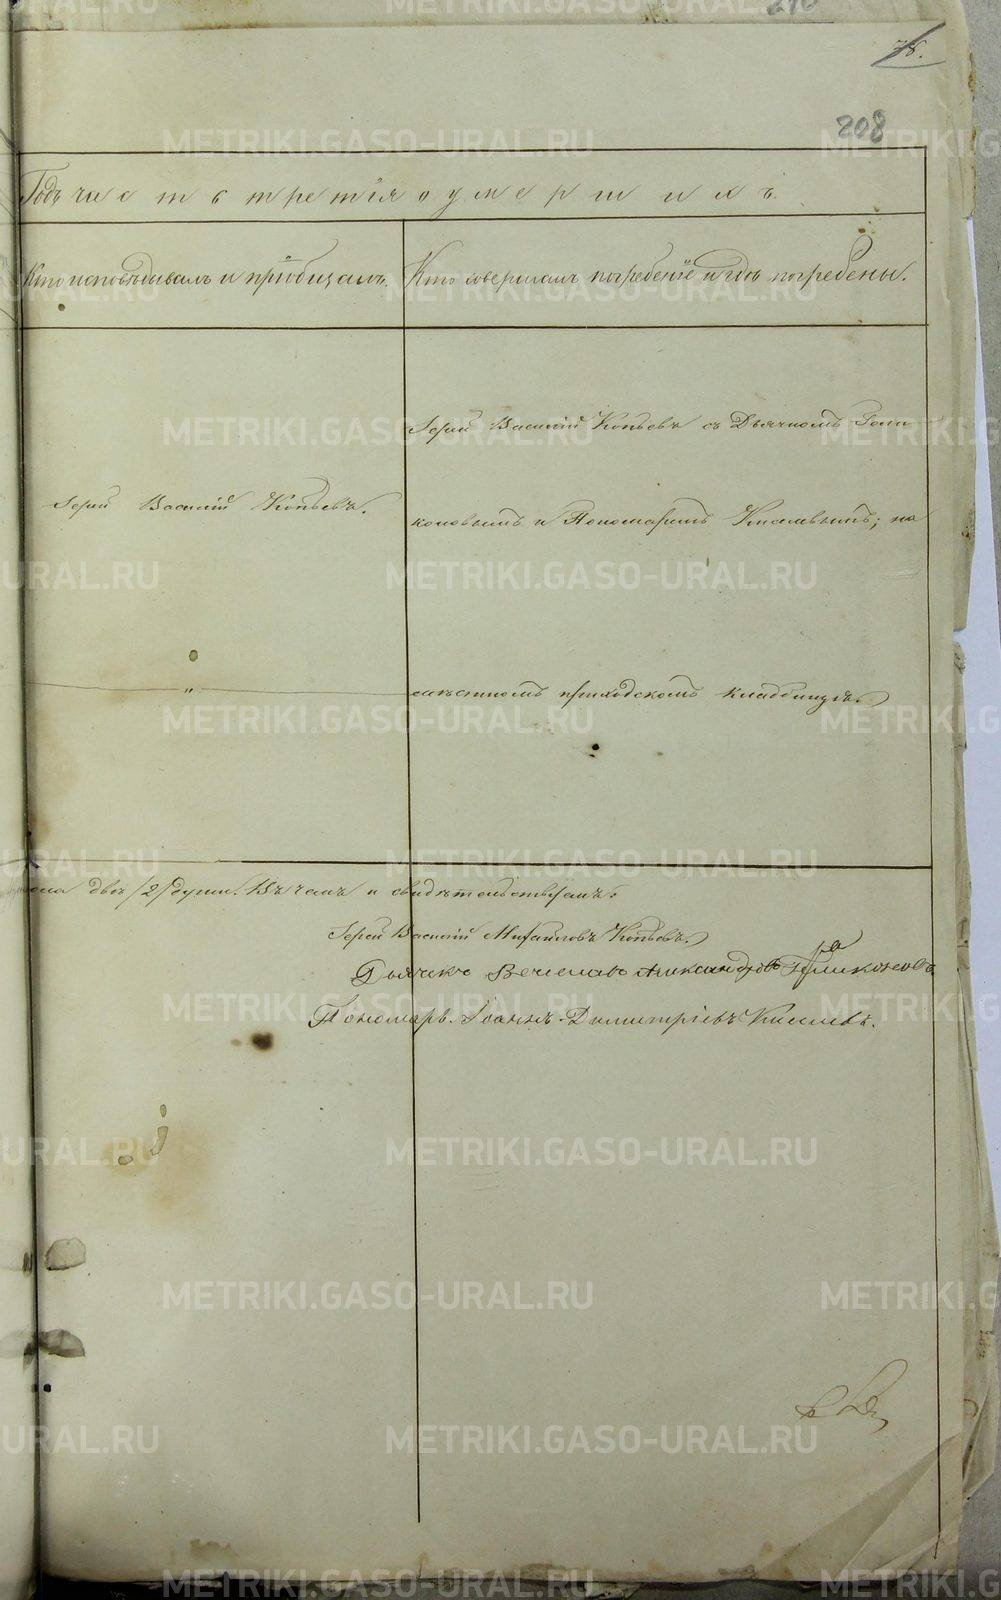 78.
208
Годъ часть третія о умершихъ.
Кто исповѣдывалъ и пріобщалъ.
Кто совершалъ погребеніе и гдѣ погребены.
Іерей Василій Копьевъ съ Дьячкомъ Голи-
Іерей Василій Копьевъ.
ковымъ и Пономаремъ Киселевымъ; на
„
мѣстномъ приходскомъ кладбищѣ.
два /2/ души. Въ чемъ и свидѣтельствуемъ:
Іерей Василій Михайловъ Копьевъ.
Дьячекъ Вечеславъ Александровъ
Пономарь Іоаннъ Димитріевъ Киселевъ.
METRIKI.GASO-URAL.RU